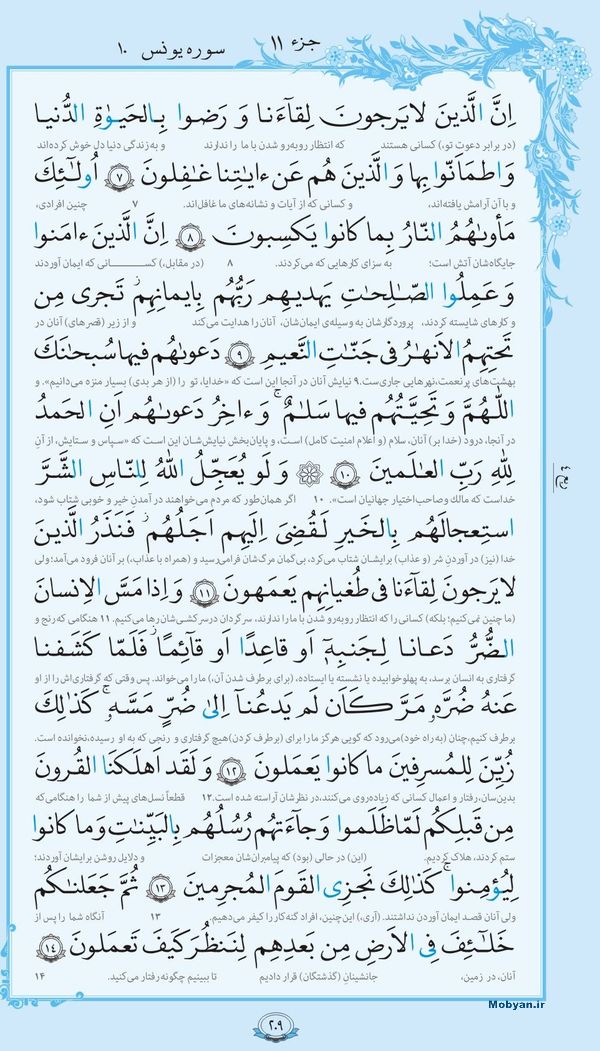 جزء ۱۱
سوره یونس ۱۰
اِنَّ الَّذینَ لایَرجونَ لِقآءَنا وَ رَضوا بِالحَیوٰةِ الدُّنیا
(در برابر دعوت تو،) کسانی هستند که انتظار روبه‌رو شدن با ما را ندارند و به‌زندگی دنیا دل خوش کرده‌اند
وَاطمَاَنّوا بِها وَالَّذینَ هُم عَن ءایٰتِنا غٰفِلونَ ﴿۷﴾ اُولٰئِکَ
و با آن آرامش یافته‌اند، و کسانی که از آیات و نشانه‌های ما غافل‌اند. ۷ چنین افرادی،
مَأوىٰهُمُ النّارُ بِما کانوا یَکسِبونَ ﴿۸﴾ اِنَّ الَّذینَ ءامَنوا
جایگاه‌شان آتش است؛ به سزای کارهایی که می‌کردند. ۸ (در مقابل،) کسانی که ایمان آوردند
وَ عَمِلُوا الصّالِحٰتِ یَهدیهِم رَبُّهُم بِایمانِهِم تَجری مِن
و کارهای شایسته کردند، پروردگارشان به وسیله‌ی ایمان‌شان، آنان را هدایت می‌کند و از زیر (قصرهای) آنان در
تَحتِهِمُ الاَنهٰرُ فی جَنّٰتِ النَّعیمِ ﴿۹﴾ دَعوىٰهُم فیها سُبحٰنَکَ
بهشت‌های پرنعمت، نهرهایی جاری‌ست. ۹ نیایش آنان در آنجا این است که «خدایا، تو را (از هر بدی) بسیار منزه می‌دانیم». و
اللّٰهُمَّ وَ تَحِیَّتُهُم فیها سَلٰمٌ وَءاخِرُ دَعوىٰهُم اَنِ الحَمدُ
در آنجا، درود (خدا بر) آنان، سلام (و اعلام امنیت کامل) است، و پایان‌بخش نیایش‌شان این است که «سپاس و ستایش، از آنِ
لِلّٰهِ رَبِّ العٰلَمینَ ﴿۱۰﴾ وَ لَو یُعَجِّلُ اللّٰهُ لِلنّاسِ الشَّرَّ
خداست که مالك وصاحب‌اختیار جهانیان است». ۱۰ اگر همان‌طور که مردم می‌خواهند در آمدنِ خیر و خوبی شتاب شود،
اسـتِعجالَهُم بِالخَیرِ لَقُضِیَ اِلَیهِم اَجَلُهُم فَنَذَرُ الَّذینَ
خدا (نیز) در آوردن شر (و عذاب) برایشان شتاب می‌کرد، بی‌گمان مرگ‌شان فرامی‌رسید و (همراه با عذاب،) بر آنان فرود می‌آمد؛ ولی
لایَرجونَ لِقآءَنا فی طُغیانِهِم یَعمَهونَ ﴿۱۱﴾ وَ اِذا مَسَّ الاِنسانَ
(ما چنین نمی‌کنیم؛ بلکه) کسانی را که انتظار روبه‌رو شدن با ما را ندارند، سرگردان در سرکشی‌شان رها می‌کنیم. ۱۱ هنگامی که رنج و
الضُّرُّ دَعانا لِجَنبِهٖ اَو قاعِدًا اَو قآئِمًا فَلَمّا کَشَفنا
گرفتاری به انسان برسد، به پهلوخوابیده یا نشسته یا ایستاده، (برای برطرف شدن آن،) ما را می‌خواند. پس وقتی که گرفتاری‌اش را از او
عَنهُ ضُرَّهٗ مَرَّ کَاَن لَم یَدعُنا اِلیٰ ضُرٍّ مَسَّهٗ کَذٰلِكَ
برطرف کنیم، چنان (به‌راه خود) می‌رود که گویی هرگز ما را برای (برطرف کردن) هیچ گرفتاری و رنجی که به او رسیده، نخوانده است.
زُیِّنَ لِلمُسرِفینَ ما کانوا یَعمَلونَ ﴿۱۲﴾ وَ لَقَد اَهلَکنَا القُرونَ
بدین‌سان، رفتار و اعمال کسانی که زیاده‌روی می‌کنند، در نظرشان آراسته شده است. ۱۲ قطعاً نسل‌های پیش از شما را هنگامی که
مِن قَبلِکُم لَمّا ظَلَموا وَ جآءَتهُم رُسُلُهُم بِالبَیِّنٰتِ وَما کانوا
ستم کردند، هلاک کردیم. (این) در حالی (بود) که پیامبرانشان معجزات و دلایل روشن برایشان آوردند؛
لِیُؤمِنوا کَذٰلِكَ نَجزِی القَومَ المُجرِمینَ ﴿۱۳﴾ ثُمَّ جَعَلنٰکُم
ولی آنان قصد ایمان آوردن نداشتند. (آری،) این‌چنین، افراد گنه‌کار را کیفر می‌دهیم. ۱۳ آنگاه شما را پس از
خَلٰئِفَ فِی الاَرضِ مِن بَعدِهِم لِنَنظُرَ کَیفَ تَعمَلونَ ﴿۱۴﴾
آنان، در زمین، جانشینان (گذشتگان) قرار دادیم تا ببینیم چگونه رفتار می‌کنید. ۱۴
۲۰۹
Mobyan.ir